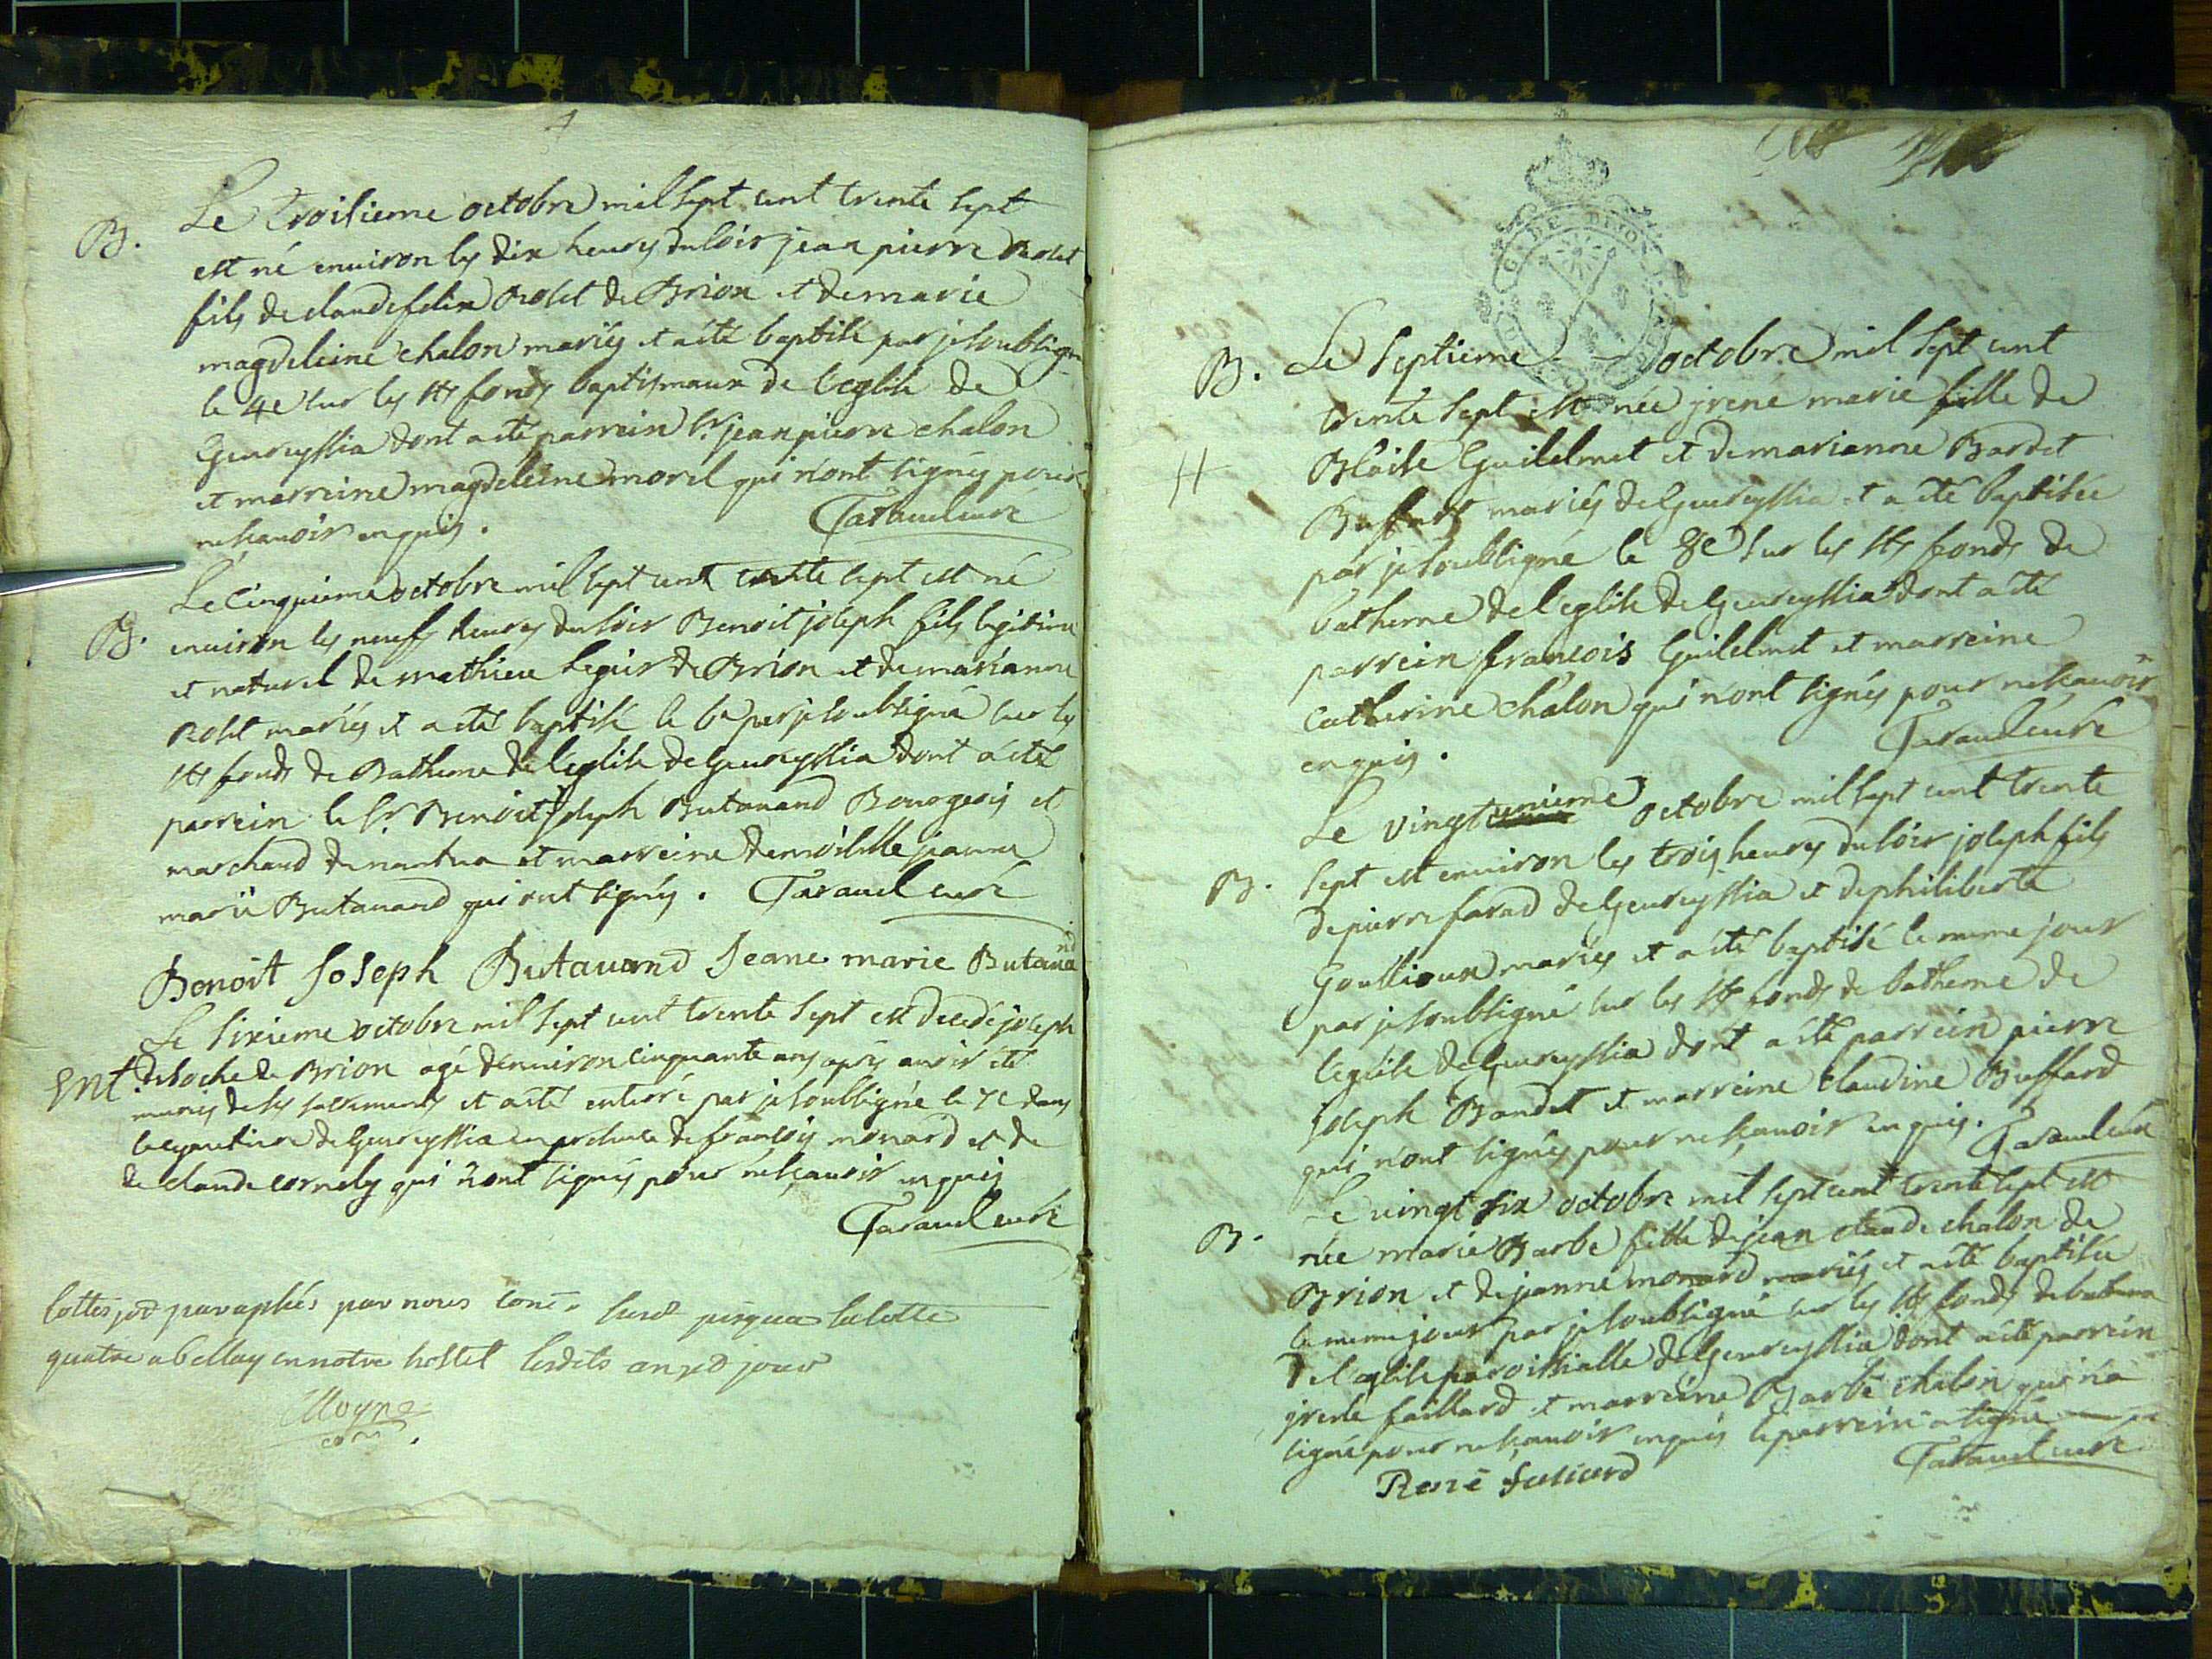 B. Le troisieme octobre mil sept cent trente sept
est né environ les dix heures du soir jean pierre Rolet
fils de claude felix Rolet de Brion et de marie
magdeleine chalon mariés et a été baptisé par je soubsigné
le 4e sur les sts fonds baptismaux de leglise de
Geureyssia dont a été parrein sr jean pierre chalon
et marreine magdeleine morel qui n'ont signés pour
ne scavoir enquis. Taraud curé
B. Le Cinquieme octobre mil sept cent trente sept est né
environ les neufs heures du soir Benoit joseph fils legitime
et naturel de mathieu de Brion et de marianne
Rolet mariés et a été baptisé le 6e par je soubsigné sur les
sts fonds de Batheme de l'eglise de Geureyssia dont a été
parrein le sr Benoit joseph Butavand Bourgeois et
marchand de nantua et marreine demoiselle jeanne
marie Butavand qui ont signés. Taraud curé
Benoit Joseph Butavand Jeane marie Butavand
Ent. Le sixieme octobre mil sept cent trente sept est decedé joseph
deloche de Brion agé denviron cinquante ans apres avoir été
munis de ses sacrements et a été enterré par je soubsigné le 7e dans
le cymetiere de Geureyssia en presence de francois monard et de
de claude cornely qui n'ont signés pour ne scavoir enquis
Taraud curé
cottes pod paraphées par nous jusques la cotte
quatre a bellay en notre hostel lesdits an et jour
Moyne
DE DIJON
B. Le septieme octobre mil sept cent
trente sept est née jrené marie fille de
Blaise Guilelmet et de marianne Bardet
Buffard mariés de Geureyssia et a été baptisée
par je soubsigné le 8e sur les sts fonds de
batheme de l'eglise de Geureyssia dont a été
parrein francois Guilelmet et marreine
Catherine chalon qui n'ont signés pour ne scavoir
enquis. Taraud curé
B. Le vingtunieme octobre mil sept cent trente
sept est environ les trois heures du soir joseph fils
de pierre farad de Geureyssia et de philiberte
Goullioux mariés et a été baptisé le meme jour
par je soubsigné sur les sts fonds de batheme de
l'eglise de Geureyssia dont a été parrein pierre
joseph Baudet et marreine claudine Buffard
qui n'ont signés pour ne scavoir enquis. Taraud curé
B. Le vingt six octobre mil sept cent trente sept est
née marie Barbe fille de jean claude chalon de
Brion et de jeanne monard mariés et a été baptisée
le meme jour par je soubsigné sur les sts fonds de batheme
de l'eglise paroissialle de Geureyssia dont a été parrein
et marreine Barbe chalon qui n'a
signé pour ne scavoir enquis le parrein a signé
René Taraud curé